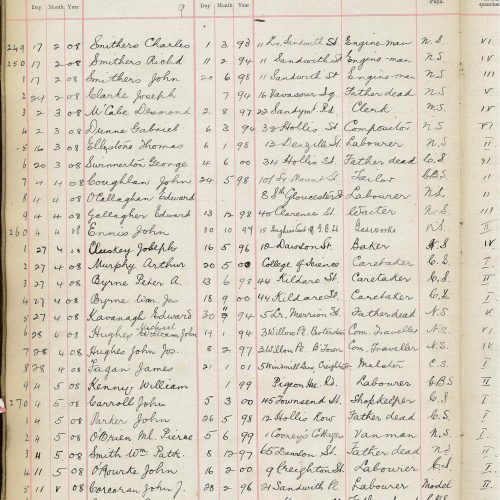 Day Month Year 9 Day Month Year Pupil. examined
249 17 2 08 Smithers Charles 1 3 93 11 Lr. Sandwith St. Engine-man N.S. VI
250 17 2 08 Smithers Richd 11 2 94 11 Sandwith St Engine-man N.S. IV
1 17 2 08 Smithers John 20 6 98 11 Sandwith St Engine-man N.S. III
2 24 2 08 Clarke Joseph 7 94 16 Vavasour Sq. Father dead N.S. V
3 2 3 08 McCabe Desmond 2 8 97 22 Sandymt. Rd Clerk M.S. IV
4 2 3 08 Dunne Gabriel 6 3 94 38 Hollis St. Compositor N.S. VI
5 16 3 08 Ellistone Thomas 6 1 98 12 Denzille St Labourer N.S. II
6 20 3 08 Summerton George 4 6 00 34 Hollis St. Father dead C.S. II
7 4 4 08 Coughlan John 24 5 98 107 Lr. Mount St. Tailor C.B.S. II
8 4 4 08 O'Callaghan Edward 8 Sth Gloucester St Labourer N.S. II
9 4 4 08 Gallagher Edward 13 12 98 40 Clarence St. Waiter N.S. III
260 4 4 08 Ennis John 30 10 97 Gasworks N.S. II
1 27 4 08 Cluskey Joseph 16 5 96 19 Dawson St. Baker N.S. IV
2 27 4 08 Murphy Arthur 20 5 00 College of Science Caretaker C.S. I
3 27 4 08 Byrne Peter A. 13 6 98 44 Kildare St. Caretaker C.S. II
4 27 4 08 Byrne Wm. Jas 18 9 00 44 Kildare St. Caretaker C.S. I
5 27 4 08 Kavanagh Edward 30 94 5 Lr. Merrion St. Father dead N.S. V
6 28 4 08 Hughes Michael William John 19 1 94 3 Willow Pl. Com. Traveller N.S. VI
7 28 4 08 Hughes John Jos. 8 2 97 2 Willow Pl. B'Town Com. Traveller N.S. IV
8 28 4 08 Fagan James 21 1 01 5 Creighton St Malster C.S. I
9 4 5 08 Kenny William 1 99 Pigeon Hse. Rd. Labourer C.B.S. II
270 4 5 08 Carroll John 5 3 00 45 Townsend St. Shopkeeper C.S. I
1 4 5 08 Parker John 26 5 98 12 Hollis Row Father dead C.S. I
2 4 5 08 O'Brien Ml. Pierse 5 6 99 1 Cooney's Cottages Vanman N.S. I
3 4 5 08 Smith Wm Patk. 8 12 97 65 Dawson St. Father dead N.S. II
4 11 5 08 O'Rourke John 16 2 00 9 Creighton St Labourer C.S. I
5 11 V 08 Corcoran John J. 28 2 96 21 Sandwith Pl Labourer Model II